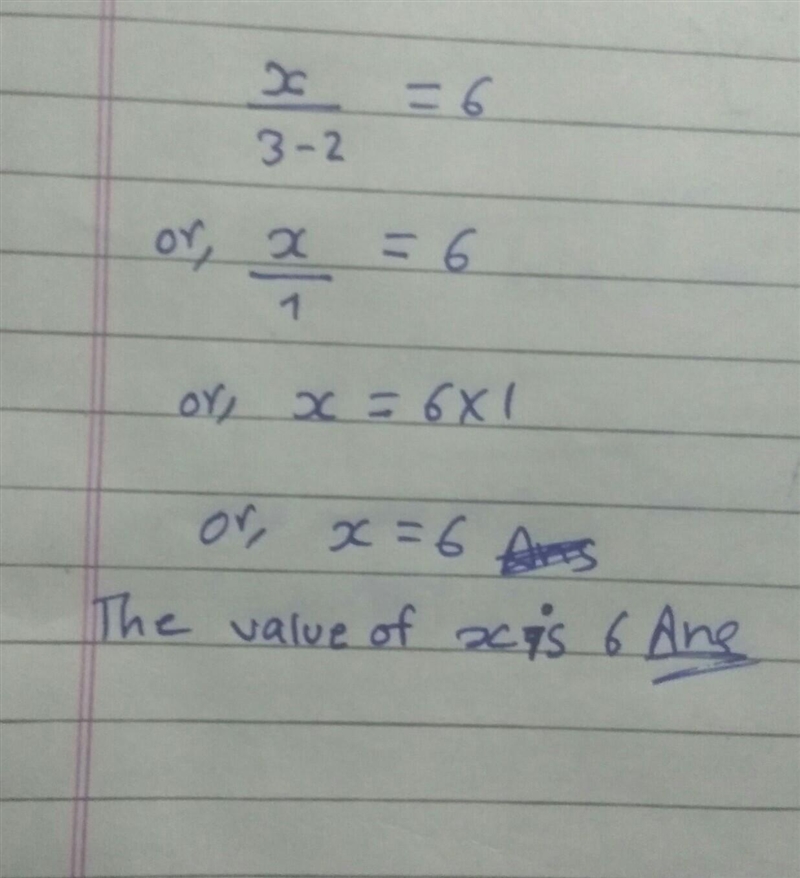 x/3-2 = 6
or, x/1 = 6
or, x = 6×1
or, x = 6 Ans
The value of x is 6 Ans